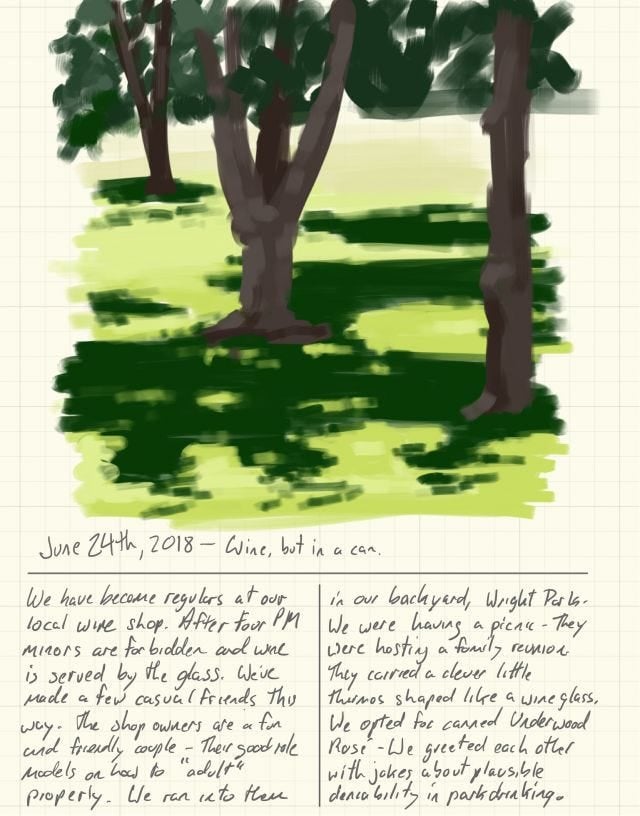 June 24th, 2018 — Wine, but in a can.
We have become regulars at our
local wine shop. After four PM
minors are forbidden and wine
is served by the glass. We've
made a few casual friends this
way. The shop owners are a fun
and friendly couple – Their good role
models on how to "adult"
properly. We ran into them
in our backyard, Wright Park.
We were having a picnic - They
were hosting a family reunion.
They carried a clever little
thermos shaped like a wine glass.
We opted for canned Underwood
Rosé - We greeted each other
with jokes about plausible
deniability in park drinking.